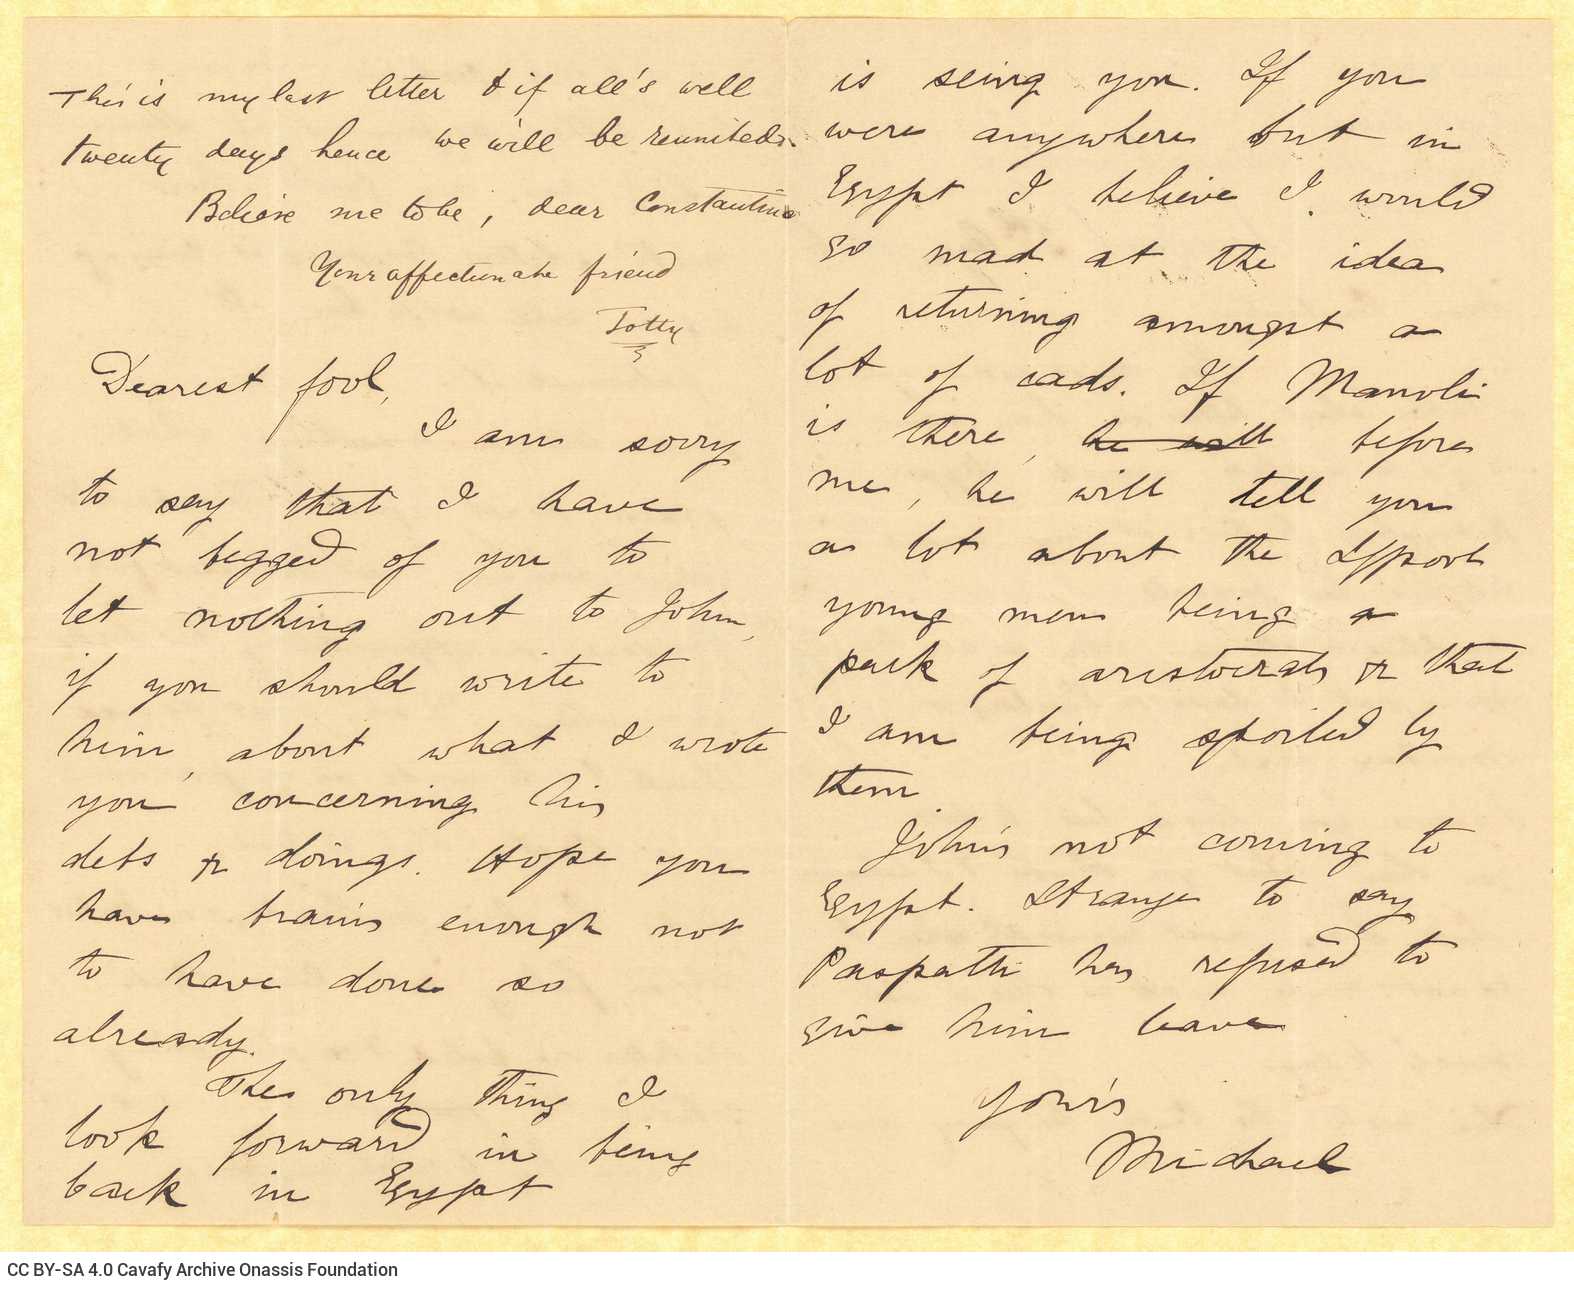 This is my last letter & if all's well
twenty days hence we will be reunited.
Believe me to be, dear Constantine
Your affectionate friend
Totty
Dearest fool,
I am sorry
to say that I have
not begged of you to
let nothing out to John,
if you should write to
him, about what I wrote
you concerning his
debs & doings. Hope you
have brains enough not
to have done so
already.
The only thing I
look forward in being
back in Egypt
is seing you. If you
were anywhere but in
Egypt I believe I would
go mad at the idea
of returning amongst a
lot of cads. If Manoli
is there, he will before
me, he will tell you
a lot about the L'pool
young men being a
pack of aristocrats & that
I am being spoiled by
them.
John's not coming to
Egypt. Strange to say
Paspatti has refused to
give him leave
Your's
Michael
CC BY-SA 4.0 Cavafy Archive Onassis Foundation